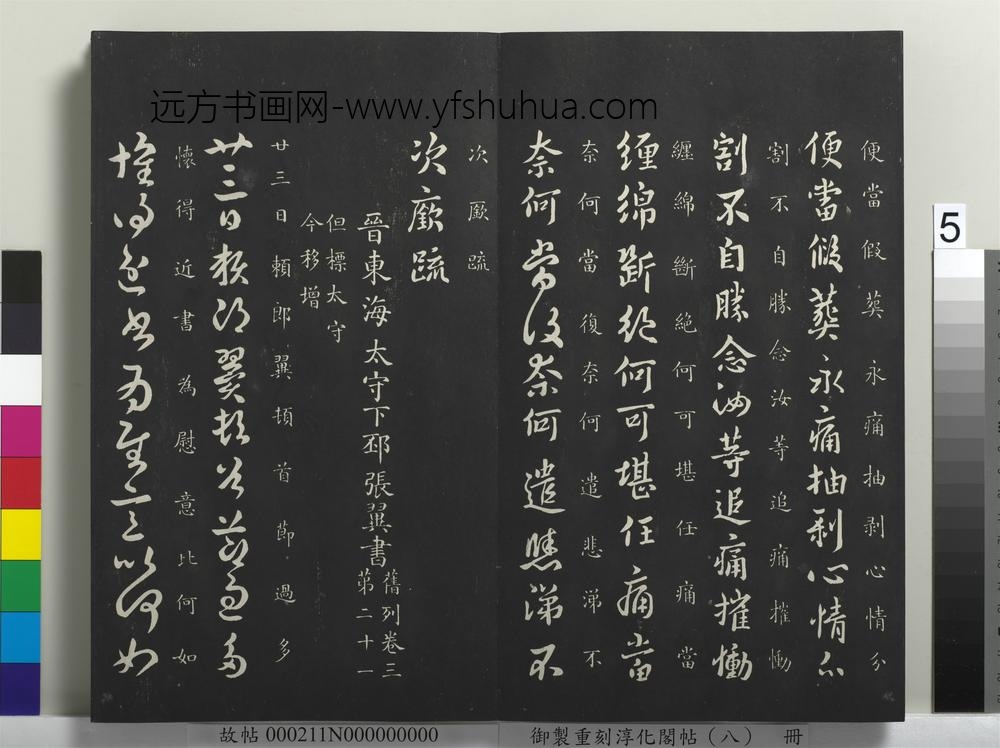 远方书画网-www.yfshuhua.com
便當假葬永痛抽剥心情分
便當假葬永痛抽剥心情分
割不自勝念汝等追痛摧慟
割不自勝念汝等追痛摧慟
纏綿斷絕何可堪任痛當
纏綿斷絕何可堪任痛當
奈何當復奈何遣悲涕不
奈何當復奈何遣悲涕不
次厭疏
次厭疏
晉東海太守下邳張翼書
舊列卷三
第二十一
但標太守
今移增
廿三日頼郎翼頓首節過多
廿三日頼郎翼頓首節過多
懷得近書為慰意比何如
懷得近書為慰意比何如
5
故帖 000211N000000000
御製重刻淳化閣帖（八） 冊